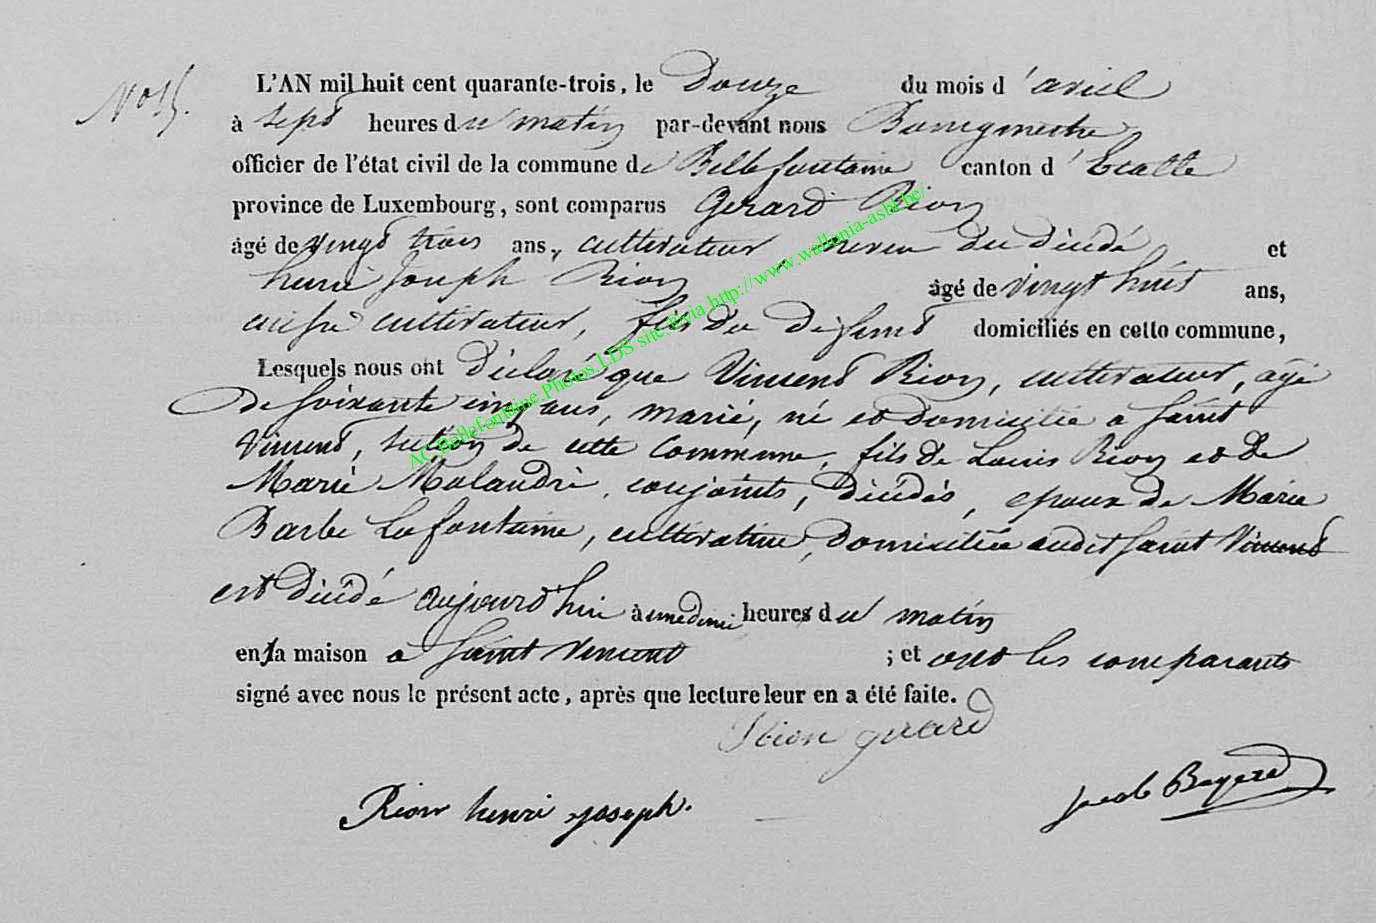 No 15.
L'AN mil huit cent quarante-trois, le Douze du mois d'avril
à sept heures du matin par-devant nous Bourgmestre
officier de l'état civil de la commune de Bellefontaine canton d'Etalle
province de Luxembourg, sont comparus Gerard Rion
âgé de vingt trois ans, cultivateur, neveu du décédé et
henri Joseph Rion âgé de vingt huit ans,
aussi cultivateur, fils du défunt domiciliés en cette commune,
Lesquels nous ont Déclaré que Vincent Rion, cultivateur, agé
de soixante cinq ans, marié, né et domicilié a Saint
Vincent, section de cette commune, fils de Louis Rion et de
Marie Malandrè, conjoints, décédés, epoux de Marie
Barbe Lafontaine, cultivatrice, domiciliée audit Saint Vincent
est décédé aujourd'hui à une demie heures du matin
en sa maison a Saint Vincent ; et ont les comparants
signé avec nous le présent acte, après que lecture leur en a été faite.
Rion gerard
Rion henri joseph.
AC Bellefontaine Photos LDS site via http://www.wallonia-asbl.be/